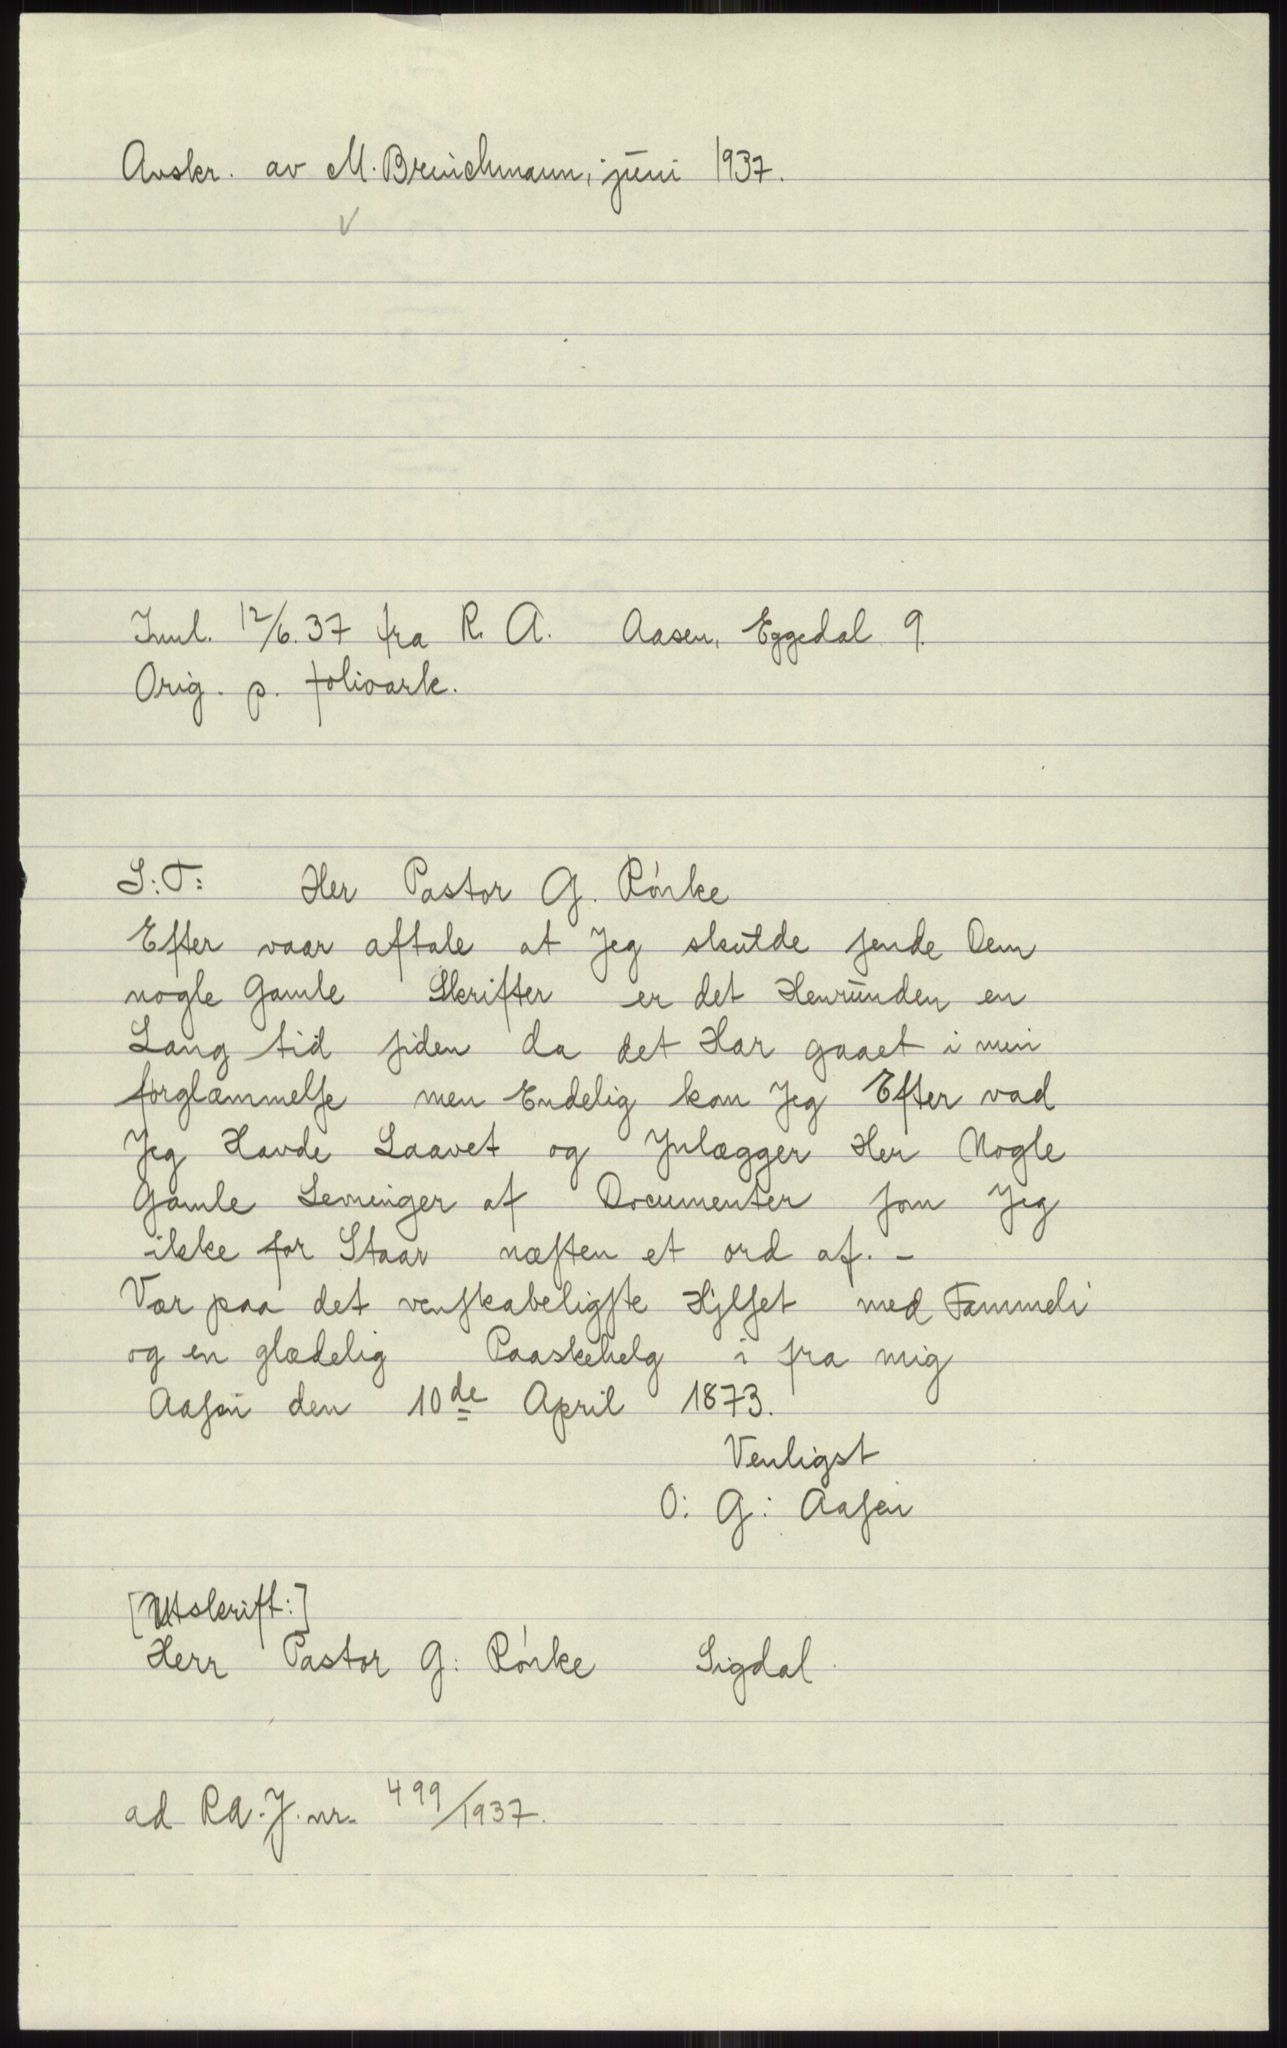 Avskr. av M. Brinchmann, juni 1937.
Innl. 12/6. 37 fra R. A. Aasen, Eggedal 9.
Orig. p. folioark.
S:T: Her Pastor G. Rönke
Efter vaar aftale at Jeg skulde sende Dem
nogle Gamle Skrifter er det Henrunden en
Lang tid siden da det Har gaaet i min
forglæmmelse men Endelig kom Jeg Efter vad
Jeg Havde Laavet og Jnlægger Her Nogle
Gamle Levninger af Documenter som Jeg
ikke for Staar næsten et ord af. -
Vær paa det venskabeligste Hilset med Fammeli
og en glædelig Paaskehelg i fra mig
Aasen den 10de April 1873.
Venligst
O: G: Aasen
[Utskrift:]
Herr Pastor G: Rönke Sigdal.
ad RA. J. nr. 499/1937.